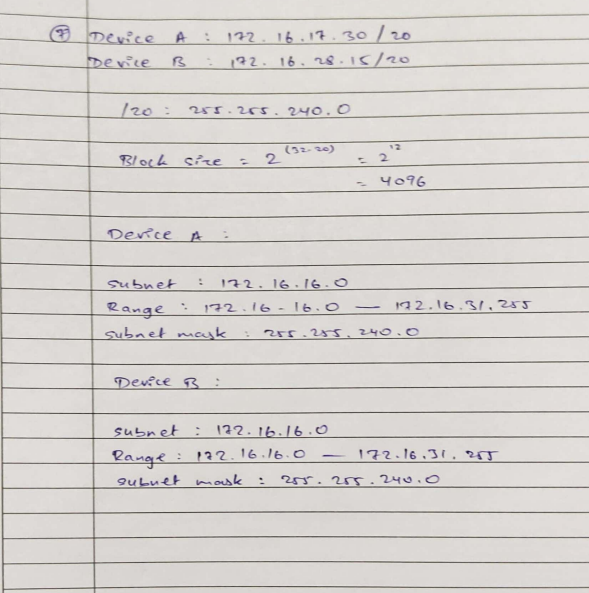 7 Device A : 172.16.17.30/20
Device B : 172.16.28.15/20
/20 : 255.255.240.0
Block size = 2^(32-20) = 2^12
= 4096
Device A :
subnet : 172.16.16.0
Range : 172.16-16.0 — 172.16.31.255
subnet mask : 255.255.240.0
Device B :
subnet : 172.16.16.0
Range : 172.16.16.0 — 172.16.31.255
subnet mask : 255.255.240.0